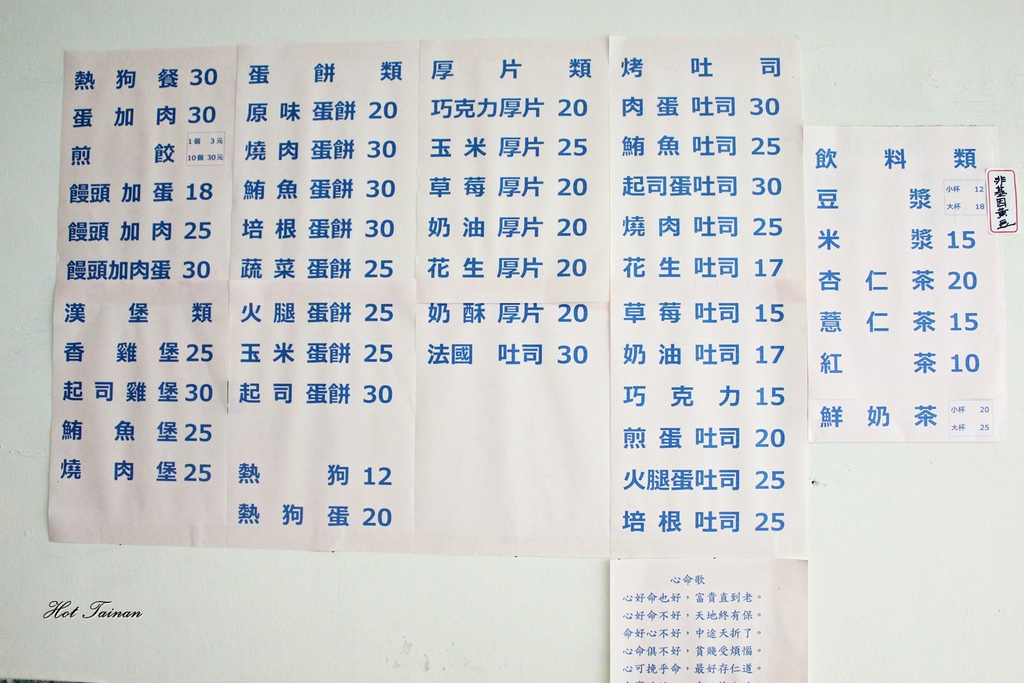 熱狗餐 30
蛋加肉 30
煎餃 1個 3元
10個 30元
饅頭加蛋 18
饅頭加肉 25
饅頭加肉蛋 30
漢堡類
香雞堡 25
起司雞堡 30
鮪魚堡 25
燒肉堡 25
蛋餅類
原味蛋餅 20
燒肉蛋餅 30
鮪魚蛋餅 30
培根蛋餅 30
蔬菜蛋餅 25
火腿蛋餅 25
玉米蛋餅 25
起司蛋餅 30
熱狗 12
熱狗蛋 20
厚片類
巧克力厚片 20
玉米厚片 25
草莓厚片 20
奶油厚片 20
花生厚片 20
奶酥厚片 20
法國吐司 30
烤吐司
肉蛋吐司 30
鮪魚吐司 25
起司蛋吐司 30
燒肉吐司 25
花生吐司 17
草莓吐司 15
奶油吐司 17
巧克力 15
煎蛋吐司 20
火腿蛋吐司 25
培根吐司 25
飲料類
豆漿 小杯 12
大杯 18
非基因黃豆
米漿 15
杏仁茶 20
薏仁茶 15
紅茶 10
鮮奶茶 小杯 20
大杯 25
心命歌
心好命也好，富貴直到老。
心好命不好，天地終有保。
命好心不好，中途夭折了。
心命俱不好，貧賤受煩惱。
心可挽乎命，最好存仁道。
Hot Tainan